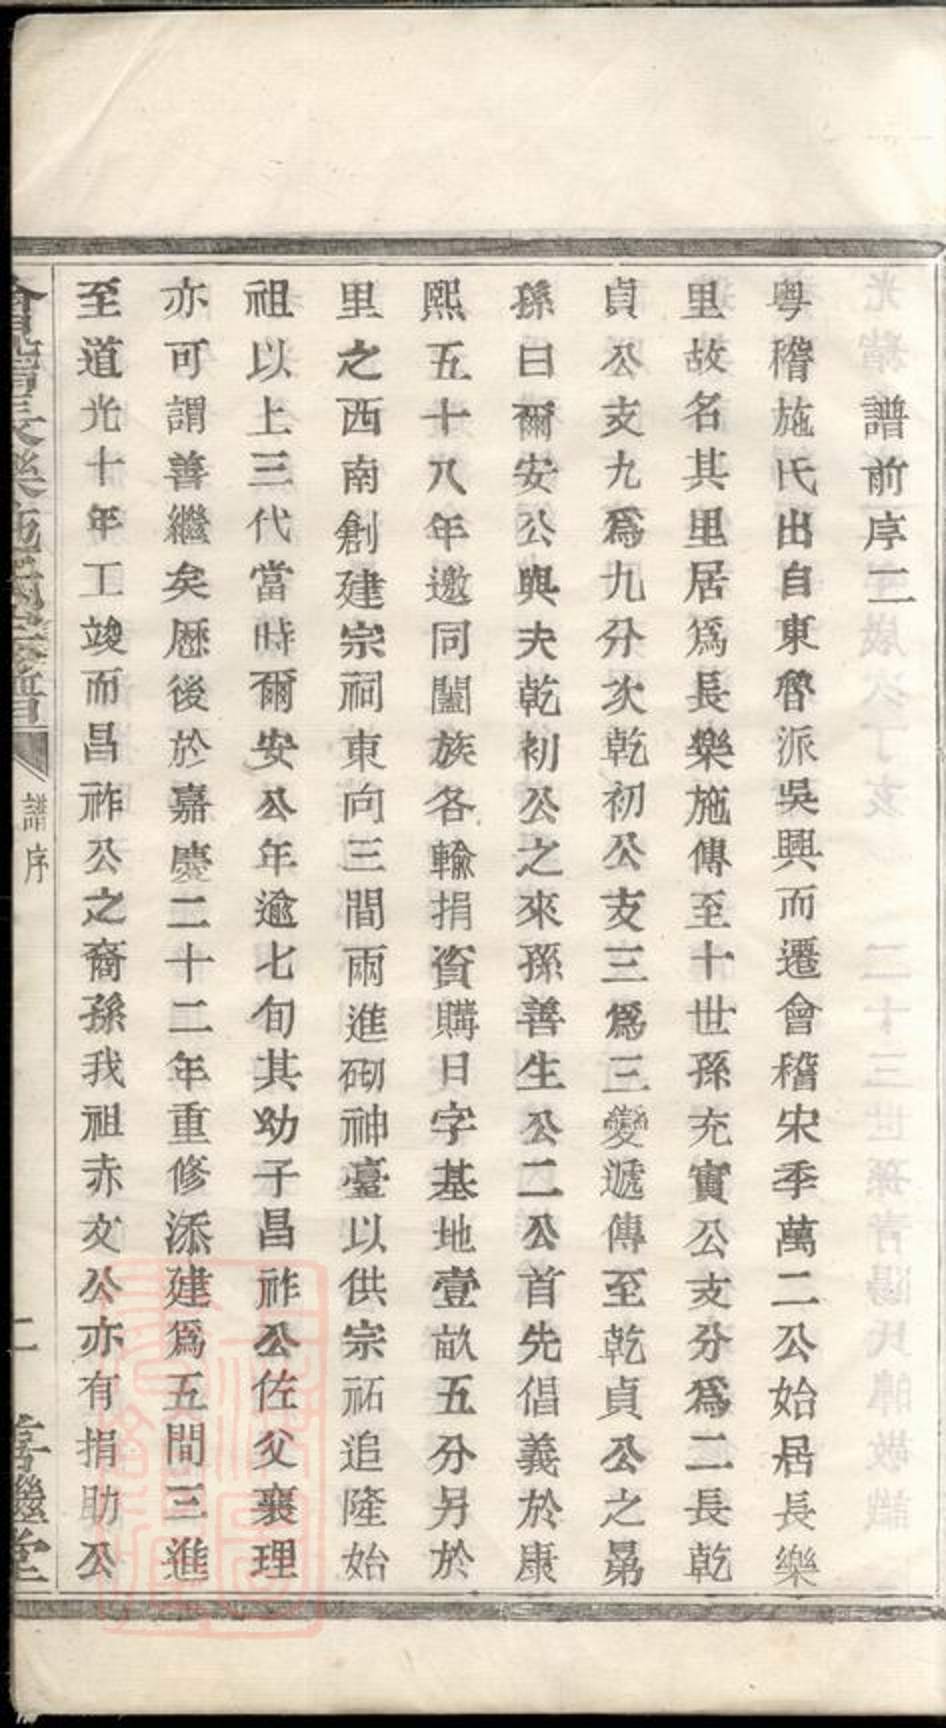 譜前序二
粵稽施氏出自東魯派吳興而遷會稽宋季萬二公始居長樂
里故名其里居爲長樂施傳至十世孫充實公支分爲二長乾
貞公支九爲九分次乾初公支三爲三變遞傳至乾貞公之曷
孫曰爾安公與夫乾初公之來孫善生公二公首先倡義於康
熙五十八年邀同闔族各輸捐資購日字基地壹畝五分另於
里之西南創建宗祠東向三間兩進砌神臺以供宗祏追隆始
祖以上三代當時爾安公年逾七旬其幼子昌祚公佐父襄理
亦可謂善繼矣厯後於嘉慶二十二年重修添建爲五間三進
至道光十年工竣而昌祚公之裔孫我祖赤文公亦有捐助公
譜序
二
善繼堂